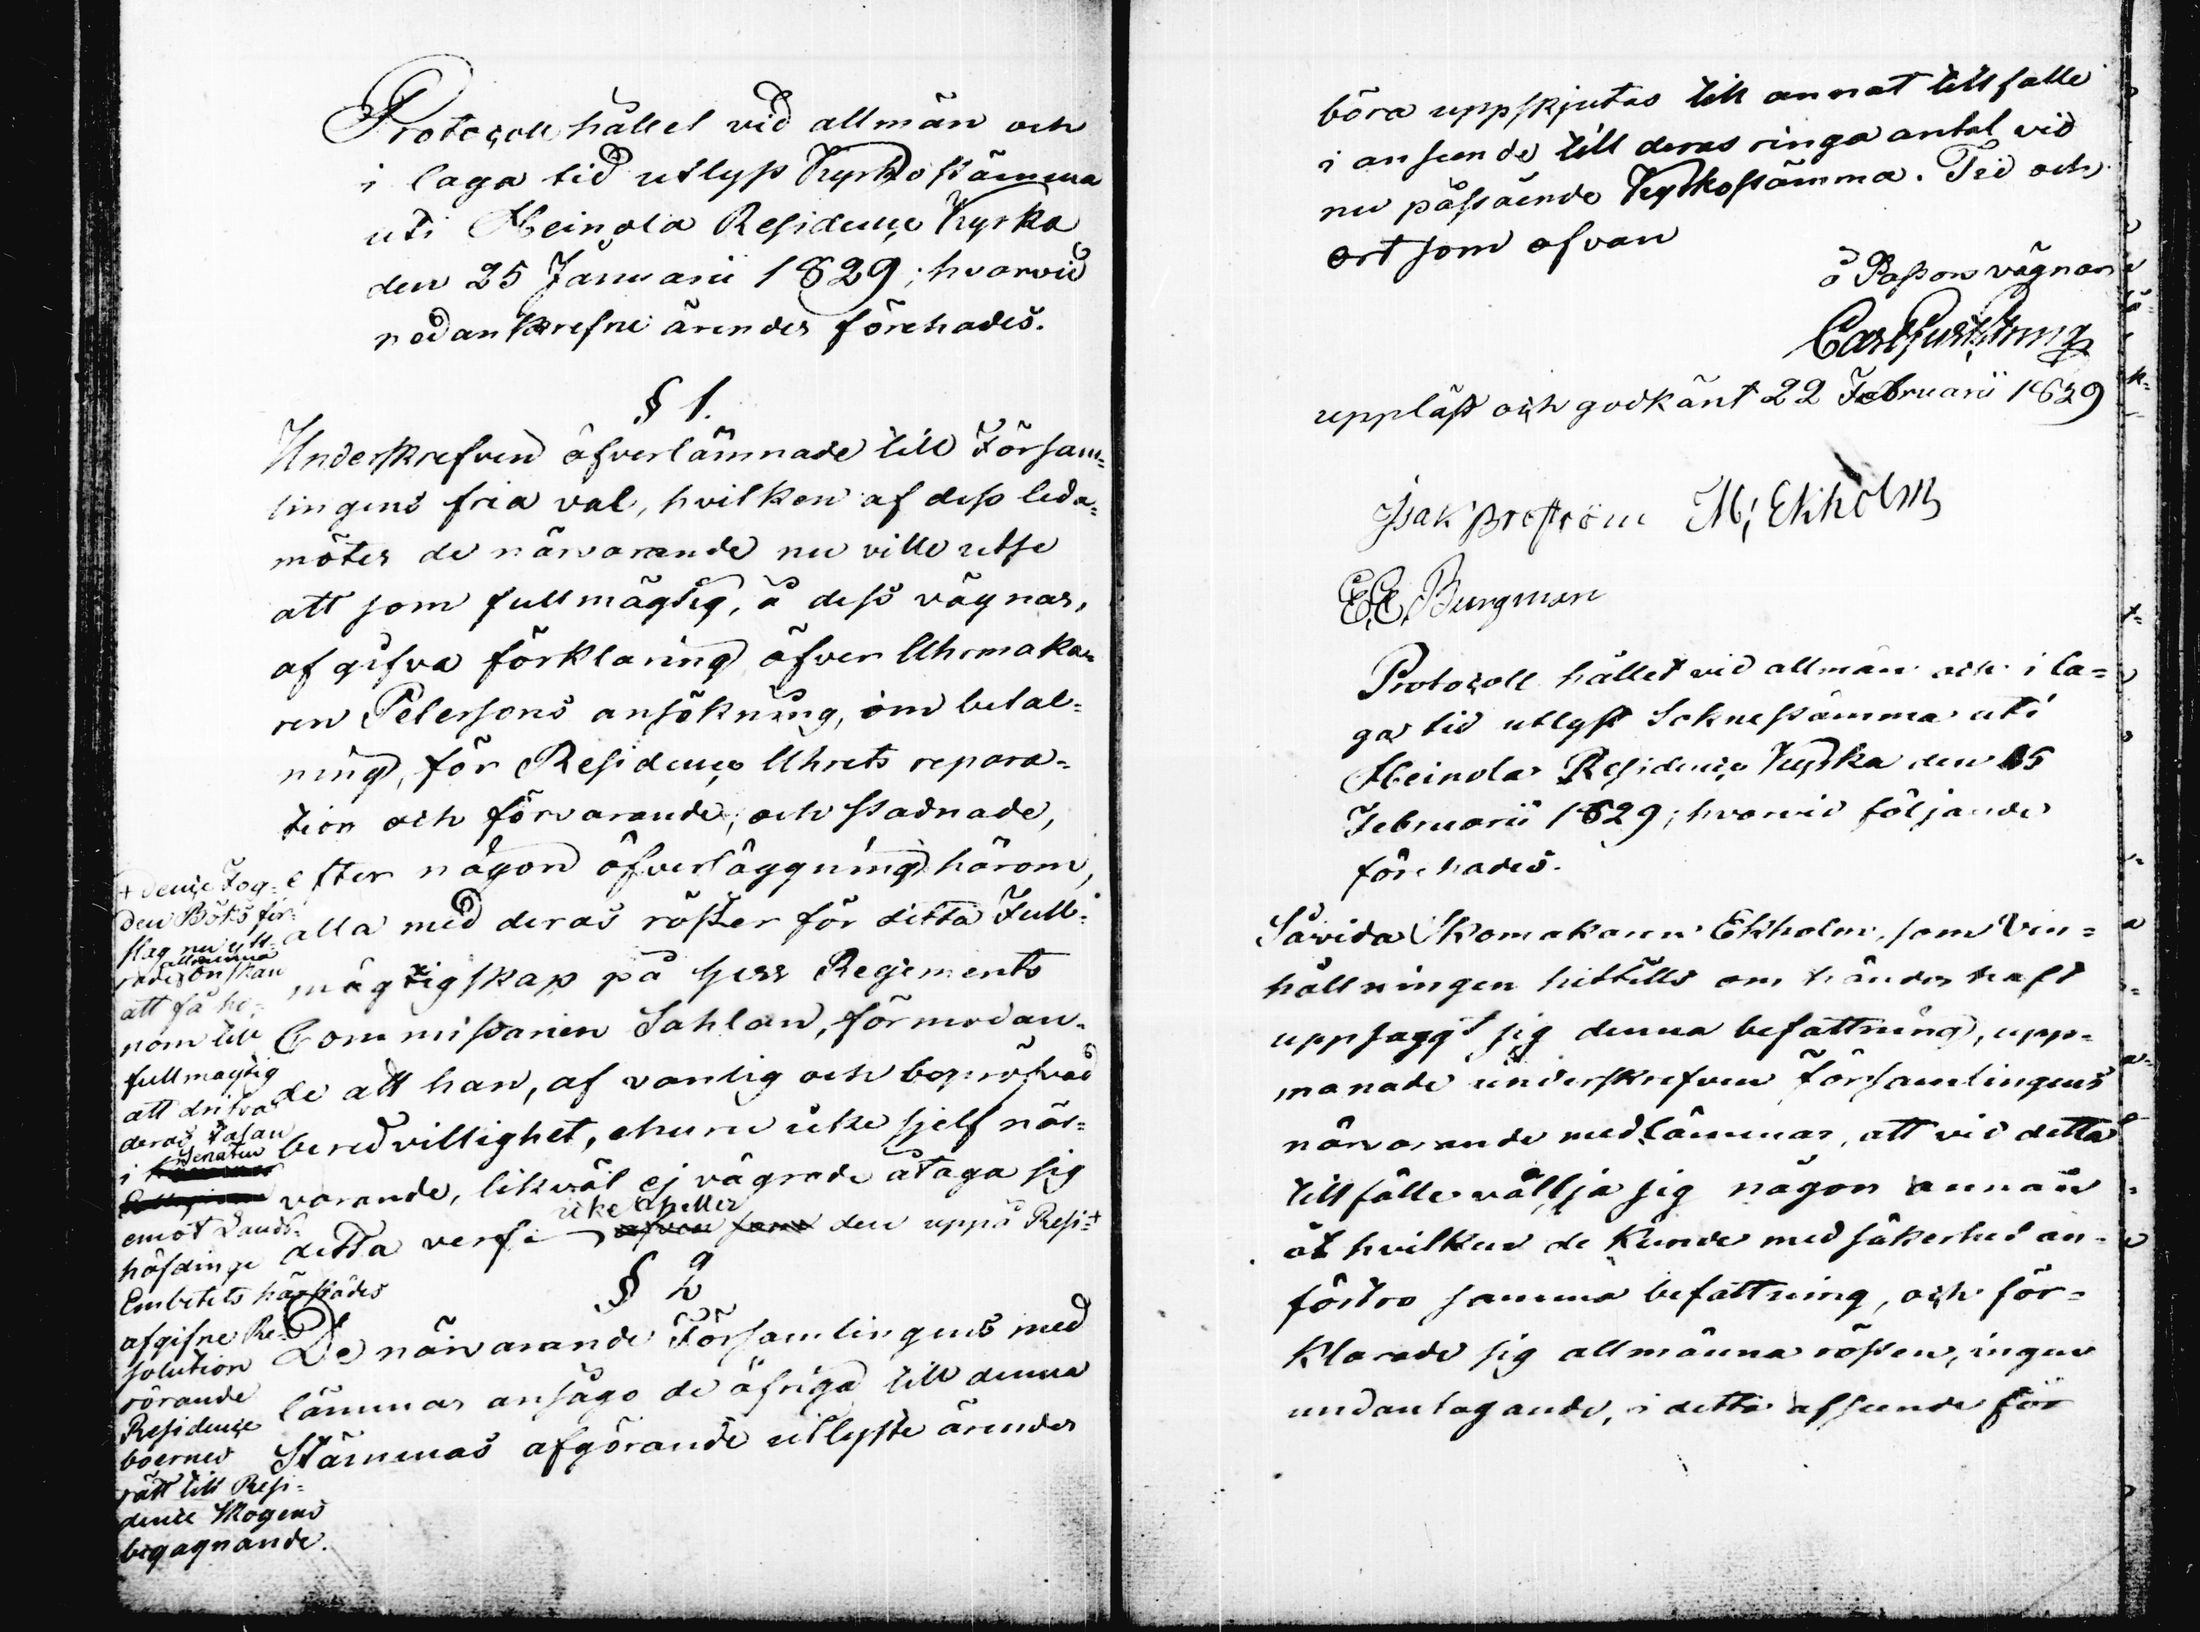 Protocoll hållet vid allmän och
i laga tid utlyst Kyrkostämma
uti Heinola Residence Kyrka
den 25 Januarii 1829; hvarvid
nedanskrefne ärender förehades.
§ 1.
Underskrefven öfverlämnade till Försam=
lingens fria val, hvilken af dess leda=
möter de närvarande nu ville utse
att som fullmägtig, å dess vägnar,
afgifva förklaring öfver Uhrmaka=
ren Petersons ansökning, om betal=
ning, för Residence Uhrets repara=
tion och förvarande; och stadnade,
efter någon öfverläggning härom,
alla med deras röster för detta Full=
mägtigskap på Herr Regements
Commissarien Sahlan, förmodan=
de att han, af vanlig och bepröfvad
beredvillighet, ehuru icke sjelf när=
varande, likväl ej vägrade åtaga sig
icke heller
detta verf i den uppå Resi=+
+ dence Fog=
den Böks för=
slag nu utt=
allmänna
rade önskan
att få ho=
nom till
fullmägtig
att drifva
deras talan
Senaten
i
emot Lands=
höfdinge
Embetets härstädes
afgifne Re=
solution
rörande
Residence
boernes
rätt till Resi=
dence Skogens
begagnande.
§ 2
De närvarande Församlingens med
lämmar ansågo de öfriga till denna
Stämmas afgörande utlyste ärender
böra uppskjutas till annat tillfälle
i anseende till deras ringa antal vid
nu påstående Kyrkostämma. Tid och
ort som ofvan
å Pastors vägnar
Carl Gust
uppläst och godkänt 22 Februarii 1829
Isak Broström M; Ekholm
E.E. Bergman
Protocoll hållet vid allmän och i la=
ga tid utlyst Socknestämma uti
Heinola Residence Kyrka den 15
Februarii 1829; hvarvid följande
förehades.
Såvida Skomakaren Ekholm, som Vin=
hållningen hittills om händer haft
uppsaggt sig denna befattning, upp=
manade underskrefven Församlingens
närvarande medlämmar, att vid detta
tillfälle vällja sig någon annan
åt hvilken de kunde med säkerhet an=
förtro samma befattning, och för=
klarade sig allmänna rösten, ingen
undantagande, i detta afseende för